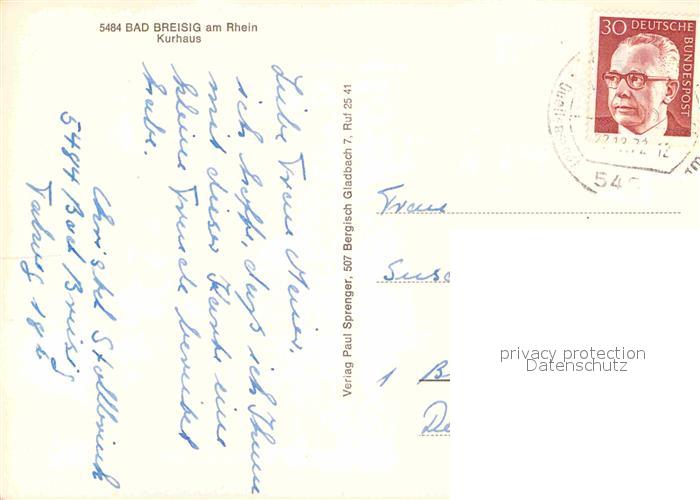 5484 BAD BREISIG am Rhein
Kurhaus
Liebe Frau Meier,
ich hoffe, dass ich Ihnen
mit dieser Karte eine
kleine Freude bereitet
habe.
Christel
5484 Bad Breisig
Verlag Paul Sprenger, 507 Bergisch Gladbach 7, Ruf 25 41
30 DEUTSCHE
BUNDESPOST
Frau
1 B
privacy protection
Datenschutz